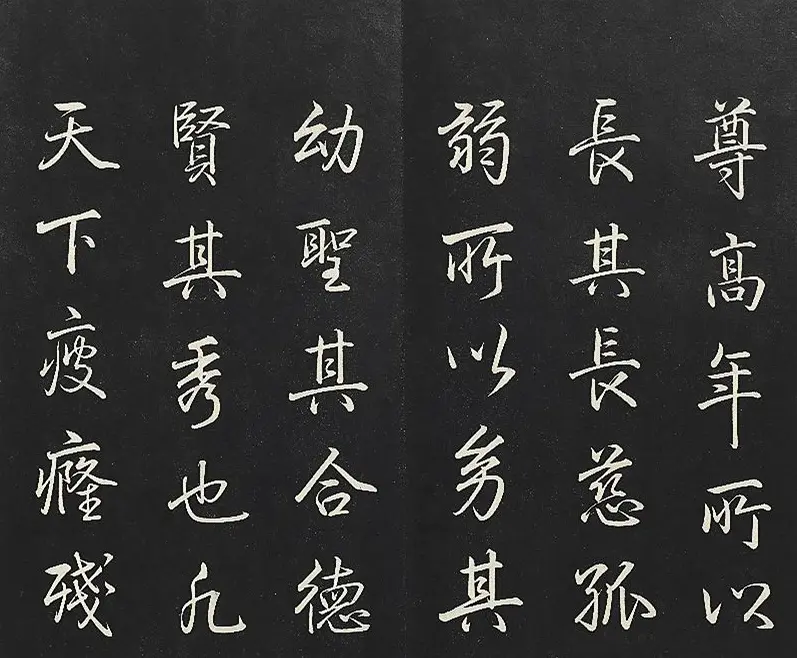 尊髙年所以
長其長慈孤
弱所以幼其
幼聖其合德
賢其秀也凡
天下疲癃殘